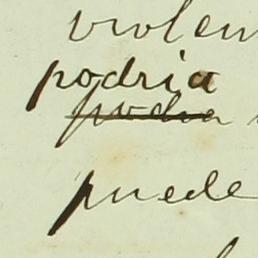 violen
podria
podia
puede